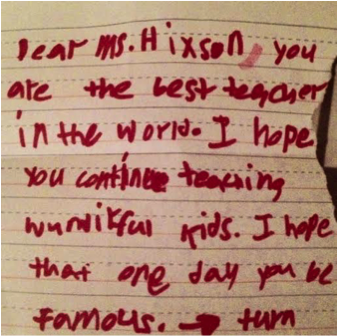 Dear Ms. Hixson, you
are the best teacher
in the world. I hope
you continue teaching
wundikful kids. I hope
that one day you be
famous. → turn